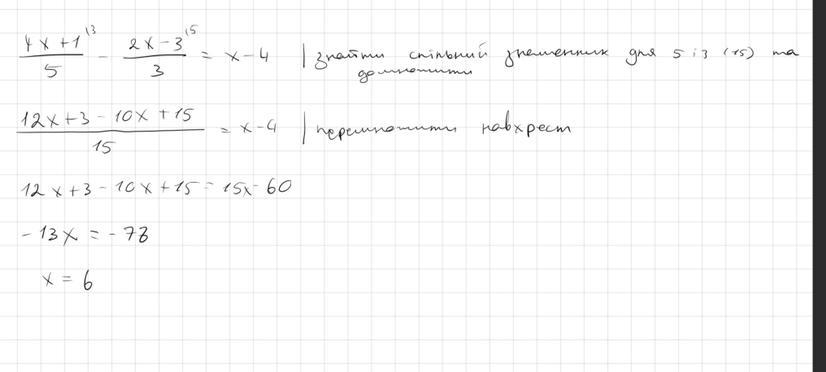 (4x+1)/5 ^{13} - (2x-3)/3 ^{15} = x-4 | знайти спільний знаменник для 5 і 3 (15) та
домножити
(12x+3-10x+15)/15 = x-4 | перемножити навхрест
12x+3-10x+15 = 15x-60
-13x = -78
x = 6